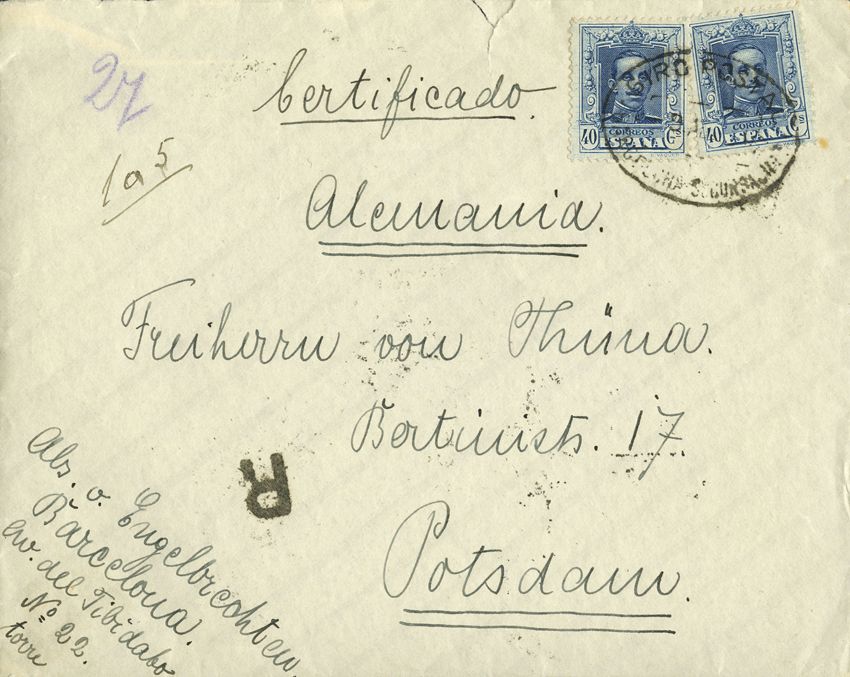 27
1 a 5
Certificado.
Alemania.
Freiherrn von Thüna.
Bertinistr. 17
Potsdam.
R
Abs. v. Engelbrechten,
Barcelona.
Av. del Tibidabo
No 22.
torre
40 CORREOS Cs
ESPAÑA
40 CORREOS Cs
ESPAÑA
GIRO POSTAL